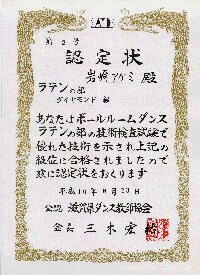 第2号
認定状
岩崎アケミ 殿
ラテンの部
ダイヤモンド級
あなたはボールルームダンス
ラテンの部の技術検査試験で
優れた技術を示され上記の
級位に合格されましたので
茲に認定状をおくります
平成10年8月23日
公認 滋賀県ダンス教師協会
会長 三木宏